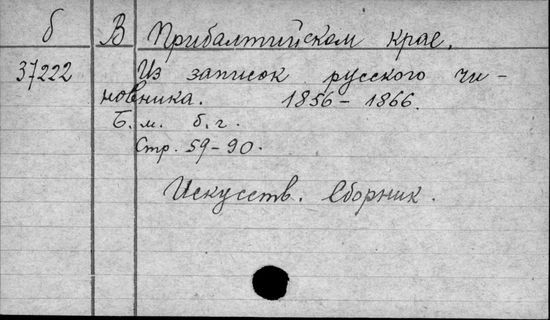 б
В Прибалтийском крае.
37222
Из записок русского чи-
новника. 1856-1866.
Б. м. б. г.
Стр. 59-90.
Искусств. Сборник.